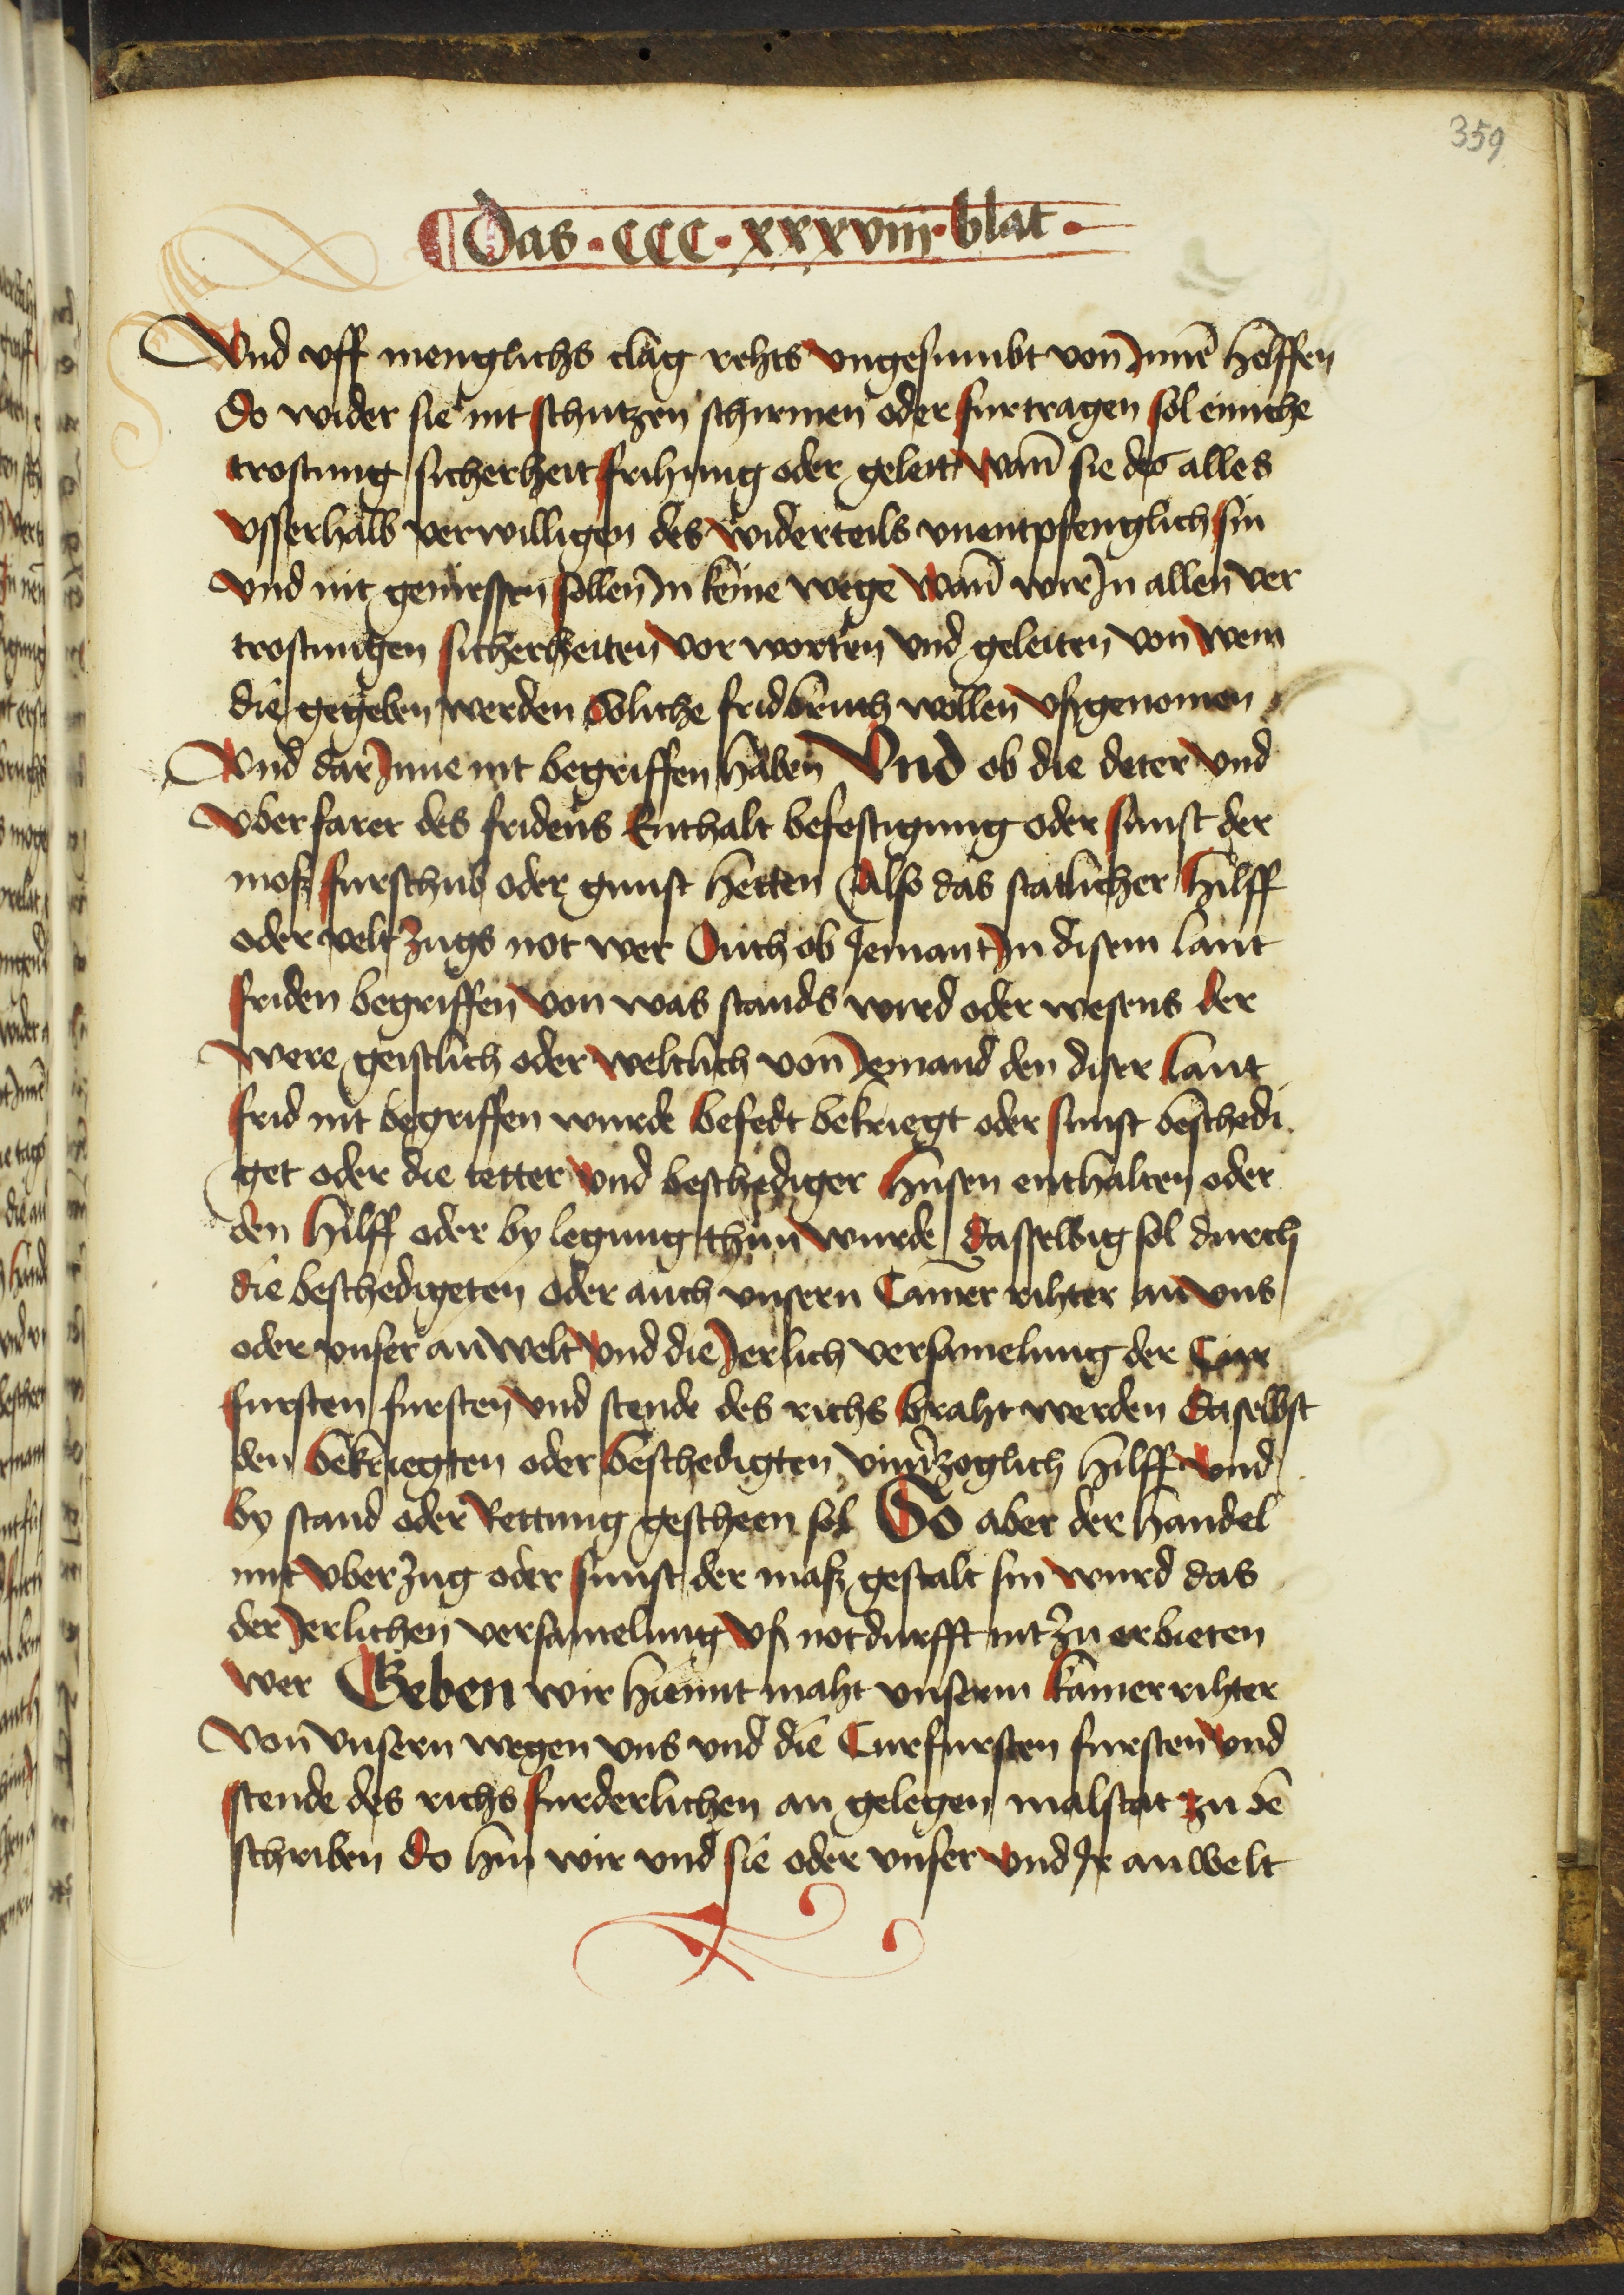 359
Das · CCC · xxxviii · blat ·
Vnd vff menglichs clag rehts vngesumbt von Jnnē helffen
Do wider sie nit schutzen schirmen oder furtragen sol einiche
trostung sicherheit frihung oder geleit Wan̄ sie des alles
vsserhalb verwilligen des widerteils vnentpfenglich sin
vnd nit geniessen sollen Jn keine wege Wan̄ wir Jn allen ver
trostungen sicherheiten vor worten vnd geleiten von wem
die gegeben werden Soliche fridbruch wollen vßgenomen
Vnd dar Jnne nit begriffen haben Vnd ob die deter vnd
vberfarer des fridens Enthalt befestigung oder sunst der
moß furschub oder gunst hetten Also das statlicher hilff
oder velt zugs not wer Ouch ob Jemant Jn disem lant
friden begriffen von was stands wird oder wesens der
were geistlich oder weltlich von Jemand den diser lant
frid nit begriffen wurde befedt bekriegt oder sunst beschedi
get oder die tetter vnd beschediger husen enthalten oder
den hilff oder by legung thun wurde dasselbig sol durch
die beschedigeten oder auch vnsern Camer rihter an vns
oder vnser anwelt vnd die Jerlich versamelung der Cur
fursten fursten vnd stende des richs braht werden daselbst
den bekriegten oder beschedigten vnuerzoglich hilff vnd
by stand oder Rettung gescheen sol So aber der handel
mit vberzug oder sunst der maß gestalt sin wurd das
der Jerlichen versamelung vß notdurfft nit zu erbieten
wer Geben wir hiemit maht vnserm kamerrihter
von vnsern wegen vns vnd die Curfursten fursten vnd
stende des richs furderlichen an gelegen malstat zu bē
schriben do hin wir vnd sie oder vnser vnd Jr anwelt